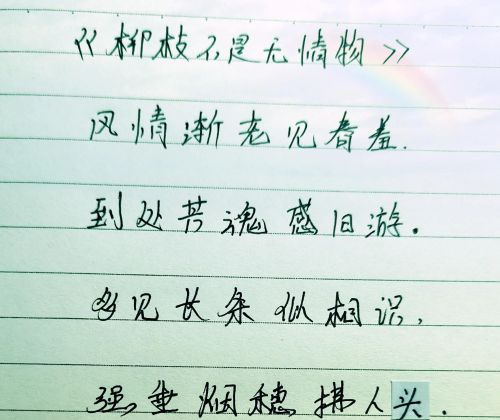 《柳枝不是无情物》
风情渐老见春羞.
到处芳魂感旧游.
多见长条似相识,
强垂烟穗拂人头.